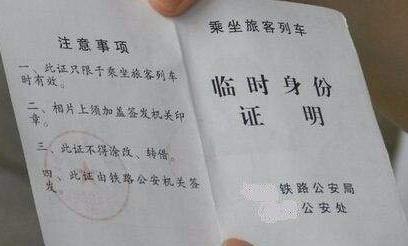 注意事项
一、此证只限于乘坐旅客列车
时有效。
二、相片上须加盖签发机关印
章。
三、此证不得涂改、转借。
四、此证由铁路公安机关签
发。
乘坐旅客列车
临时身份
证明
铁路公安局
公安处